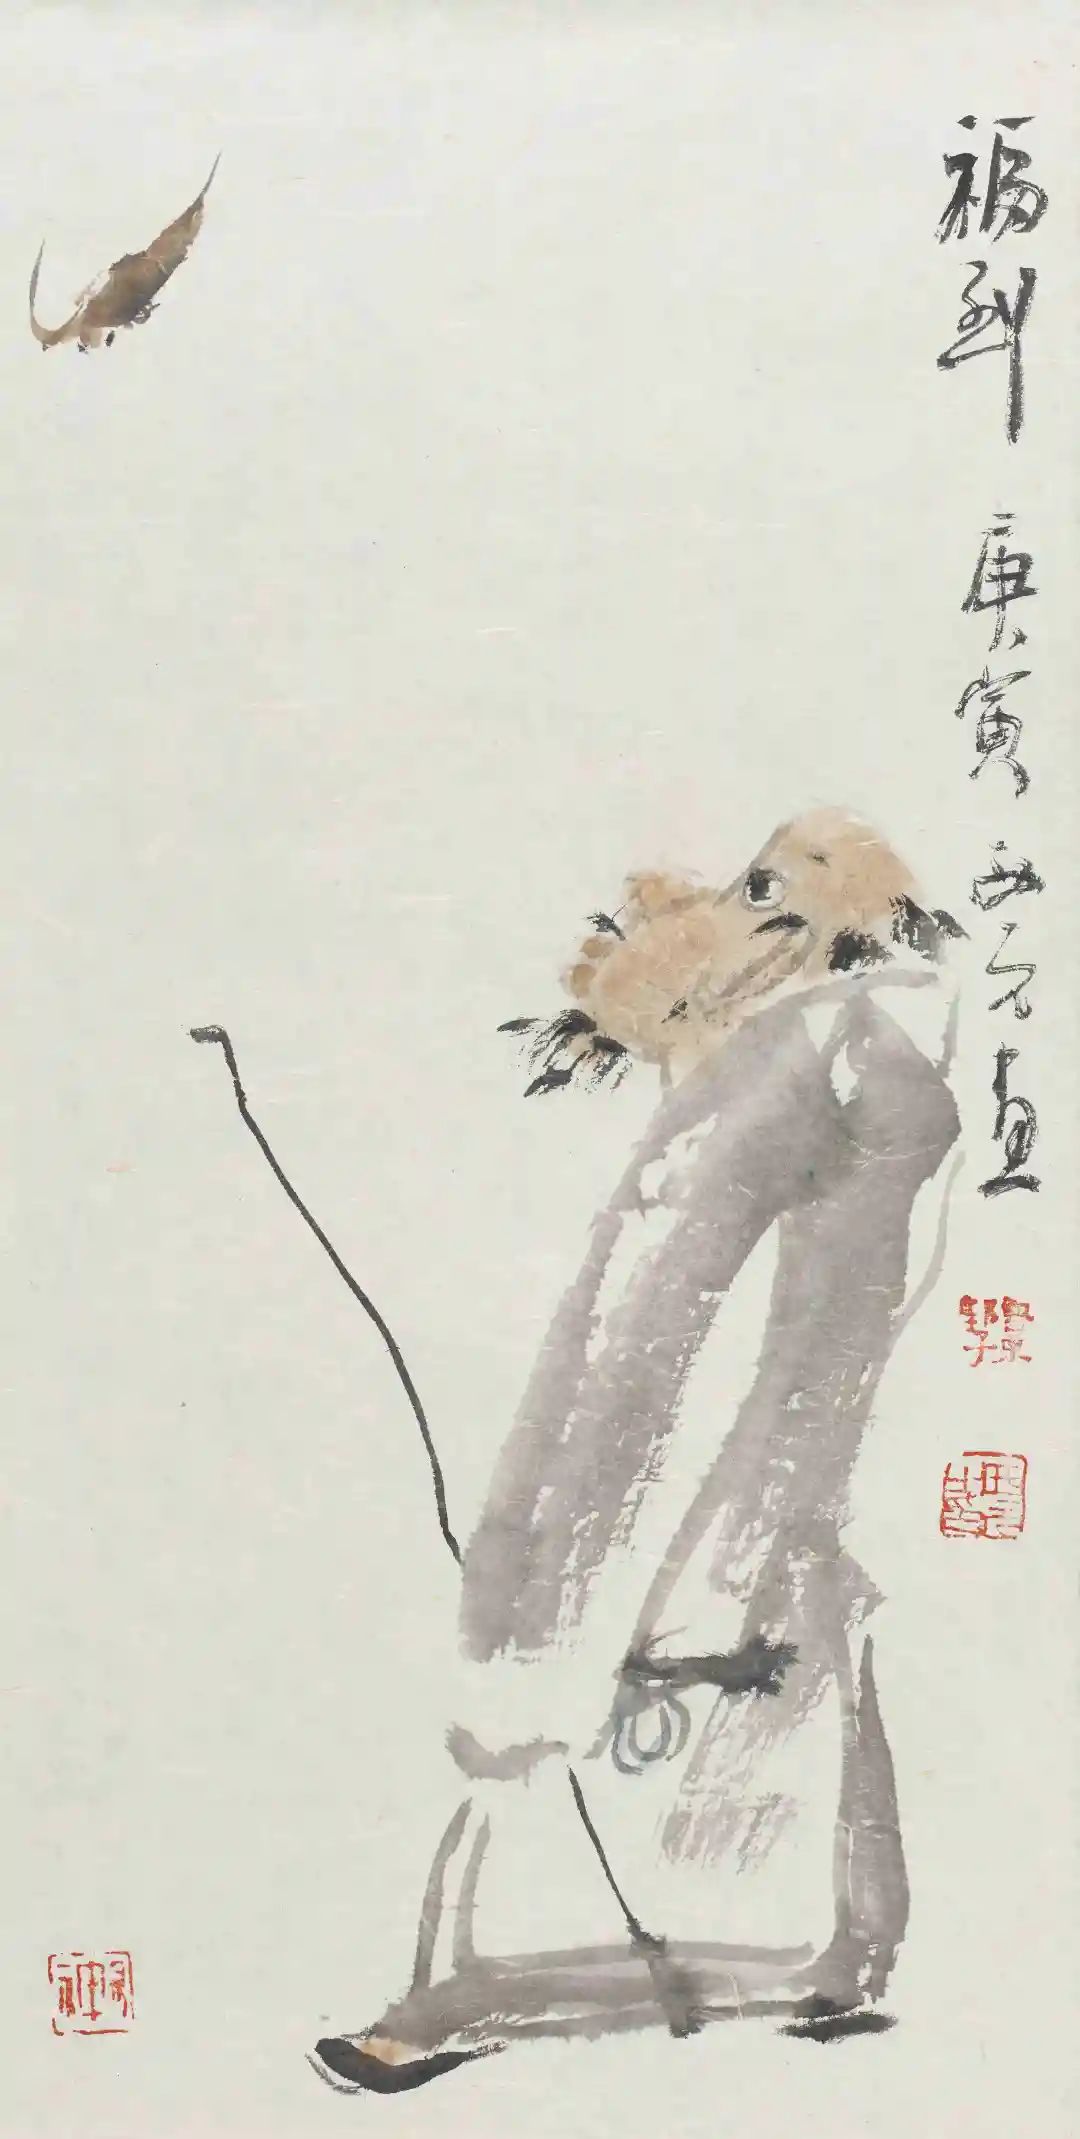 福到 庚寅 西元畫